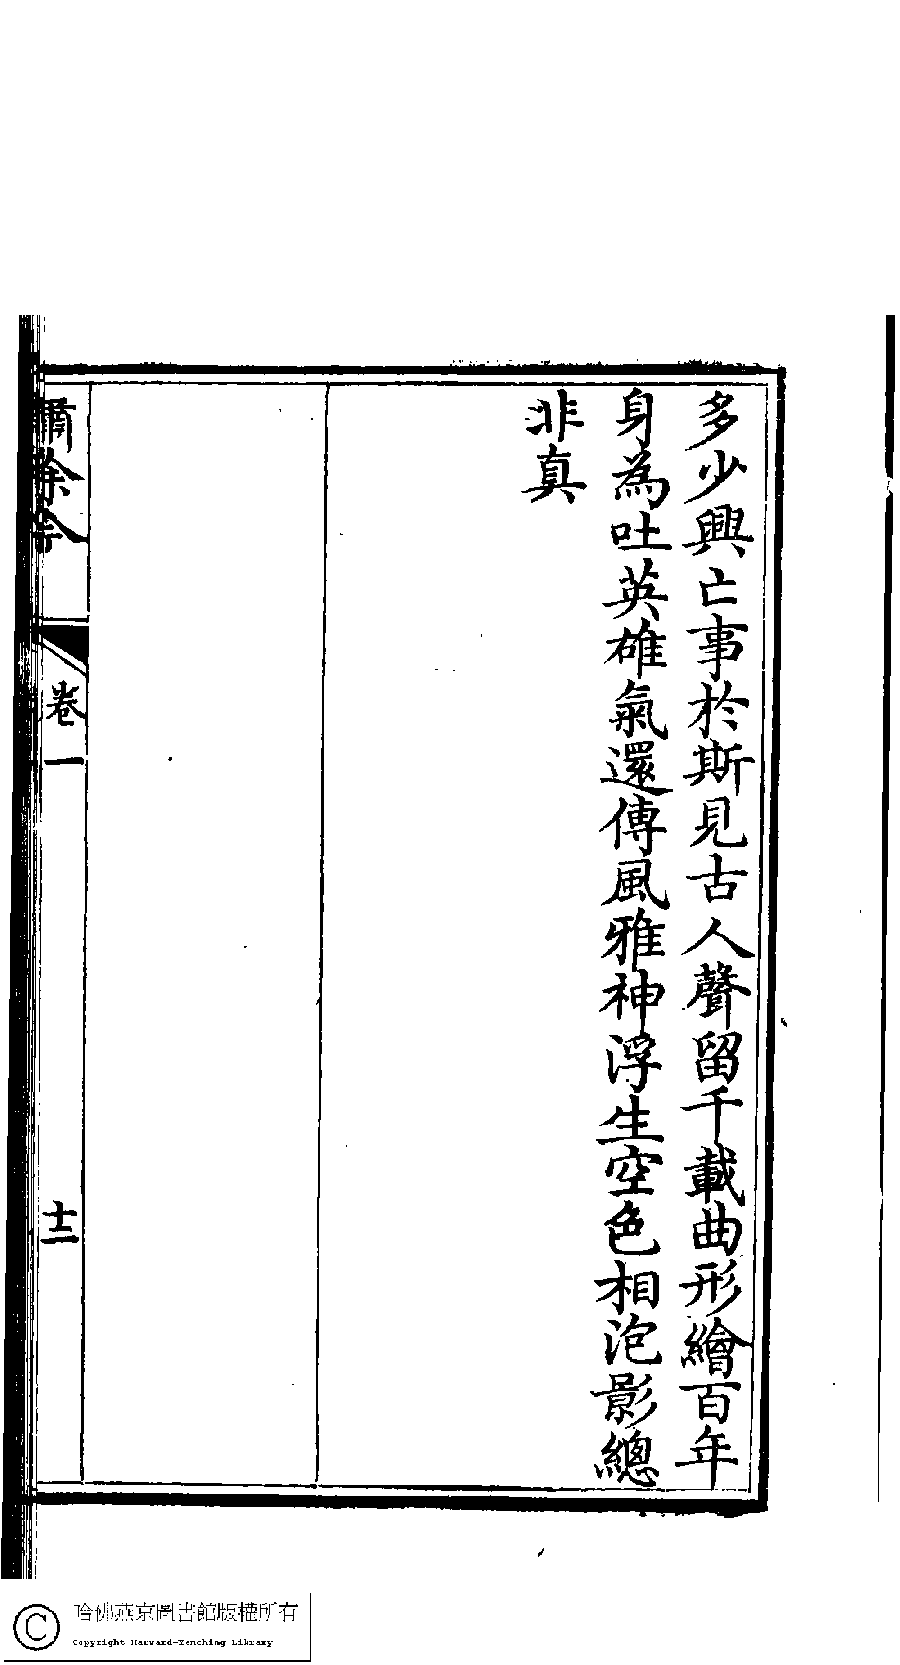 多少興亡事於斯見古人聲留千載曲形繪百年
身為吐英雄氣還傳風雅神浮生空色相泡影總
非真
卷一
十二
哈佛燕京圖書館版權所有
Copyright Harvard-Yenching Library